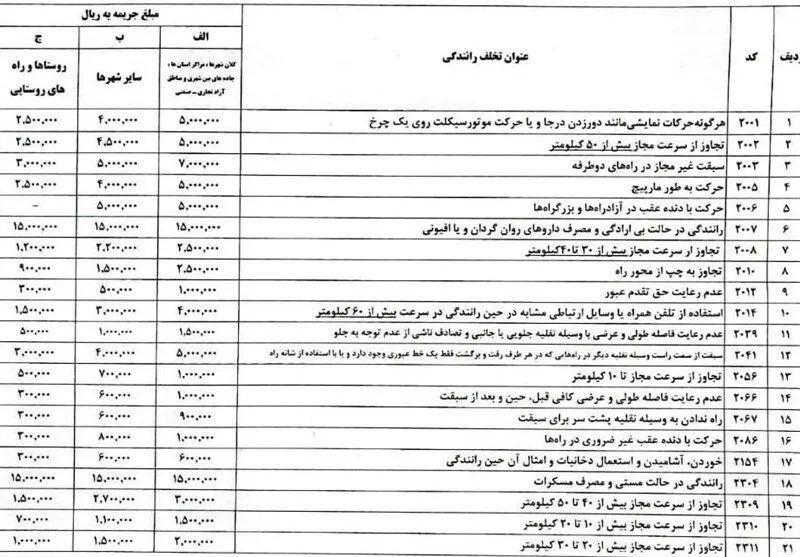 ردیف | کد | عنوان تخلف رانندگی | مبلغ جریمه به ریال
الف | ب | ج
کلان شهرها ، مراکز استان ها ، جاده های بین شهری و مناطق آزاد تجاری – صنعتی | سایر شهرها | روستاها و راه های روستایی
۱ | ۲۰۰۱ | هرگونه حرکات نمایشی مانند دورزدن درجا و یا حرکت موتورسیکلت روی یک چرخ | ۵,۰۰۰,۰۰۰ | ۴,۰۰۰,۰۰۰ | ۲,۵۰۰,۰۰۰
۲ | ۲۰۰۲ | تجاوز از سرعت مجاز بیش از ۵۰ کیلومتر | ۵,۰۰۰,۰۰۰ | ۴,۵۰۰,۰۰۰ | ۲,۵۰۰,۰۰۰
۳ | ۲۰۰۳ | سبقت غیر مجاز در راه‌های دوطرفه | ۷,۰۰۰,۰۰۰ | ۵,۰۰۰,۰۰۰ | ۳,۰۰۰,۰۰۰
۴ | ۲۰۰۵ | حرکت به طور مارپیچ | ۵,۰۰۰,۰۰۰ | ۴,۰۰۰,۰۰۰ | ۲,۵۰۰,۰۰۰
۵ | ۲۰۰۶ | حرکت با دنده عقب در آزادراه‌ها و بزرگراه‌ها | ۵,۰۰۰,۰۰۰ | ۵,۰۰۰,۰۰۰ | –
۶ | ۲۰۰۷ | رانندگی در حالت بی ارادگی و مصرف داروهای روان گردان و یا افیونی | ۱۵,۰۰۰,۰۰۰ | ۱۵,۰۰۰,۰۰۰ | ۱۵,۰۰۰,۰۰۰
۷ | ۲۰۰۸ | تجاوز ار سرعت مجاز بیش از ۳۰ تا ۴۰کیلومتر | ۲,۵۰۰,۰۰۰ | ۲,۲۰۰,۰۰۰ | ۱,۲۰۰,۰۰۰
۸ | ۲۰۱۰ | تجاوز به چپ از محور راه | ۲,۵۰۰,۰۰۰ | ۱,۵۰۰,۰۰۰ | ۹۰۰,۰۰۰
۹ | ۲۰۱۲ | عدم رعایت حق تقدم عبور | ۱,۰۰۰,۰۰۰ | ۵۰۰,۰۰۰ | ۳۰۰,۰۰۰
۱۰ | ۲۰۱۴ | استفاده از تلفن همراه یا وسایل ارتباطی مشابه در حین رانندگی در سرعت بیش از ۶۰ کیلومتر | ۴,۰۰۰,۰۰۰ | ۳,۰۰۰,۰۰۰ | ۱,۵۰۰,۰۰۰
۱۱ | ۲۰۳۹ | عدم رعایت فاصله طولی و عرضی با وسیله نقلیه جلویی یا جانبی و تصادف ناشی از عدم توجه به جلو | ۱,۵۰۰,۰۰۰ | ۱,۰۰۰,۰۰۰ | ۵۰۰,۰۰۰
۱۲ | ۲۰۴۱ | سبقت از سمت راست وسیله نقلیه دیگر در راه‌هایی که در هر طرف رفت و برگشت فقط یک خط عبوری وجود دارد و یا با استفاده از شانه راه | ۵,۰۰۰,۰۰۰ | ۴,۰۰۰,۰۰۰ | ۳,۰۰۰,۰۰۰
۱۳ | ۲۰۵۶ | تجاوز از سرعت مجاز تا ۱۰ کیلومتر | ۱,۰۰۰,۰۰۰ | ۷۰۰,۰۰۰ | ۵۰۰,۰۰۰
۱۴ | ۲۰۶۶ | عدم رعایت فاصله طولی و عرضی کافی قبل، حین و بعد از سبقت | ۱,۰۰۰,۰۰۰ | ۶۰۰,۰۰۰ | ۳۰۰,۰۰۰
۱۵ | ۲۰۶۷ | راه ندادن به وسیله نقلیه پشت سر برای سبقت | ۹۰۰,۰۰۰ | ۶۰۰,۰۰۰ | ۳۰۰,۰۰۰
۱۶ | ۲۰۸۶ | حرکت با دنده عقب غیر ضروری در راه‌ها | ۱,۰۰۰,۰۰۰ | ۸۰۰,۰۰۰ | ۳۰۰,۰۰۰
۱۷ | ۲۱۵۴ | خوردن، آشامیدن و استعمال دخانیات و امثال آن حین رانندگی | ۶۰۰,۰۰۰ | ۶۰۰,۰۰۰ | ۳۰۰,۰۰۰
۱۸ | ۲۳۰۴ | رانندگی در حالت مستی و مصرف مسکرات | ۱۵,۰۰۰,۰۰۰ | ۱۵,۰۰۰,۰۰۰ | ۱۵,۰۰۰,۰۰۰
۱۹ | ۲۳۰۹ | تجاوز از سرعت مجاز بیش از ۴۰ تا ۵۰ کیلومتر | ۳,۰۰۰,۰۰۰ | ۲,۷۰۰,۰۰۰ | ۱,۵۰۰,۰۰۰
۲۰ | ۲۳۱۰ | تجاوز از سرعت مجاز بیش از ۱۰ تا ۲۰ کیلومتر | ۱,۵۰۰,۰۰۰ | ۱,۱۰۰,۰۰۰ | ۷۰۰,۰۰۰
۲۱ | ۲۳۱۱ | تجاوز از سرعت مجاز بیش از ۲۰ تا ۳۰ کیلومتر | ۲,۰۰۰,۰۰۰ | ۱,۵۰۰,۰۰۰ | ۱,۰۰۰,۰۰۰